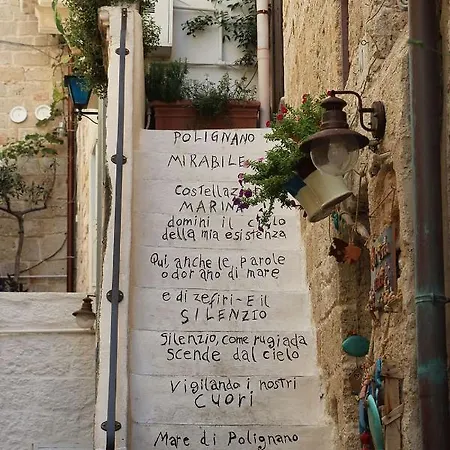 POLIGNANO
MIRABILE
Costellaz
MARINA
domini il cielo
della mia esistenza
Qui, anche le parole
odorano di mare
e di zefiri - E il
SILENZIO
Silenzio, come rugiada
scende dal cielo
Vigilando i nostri
cuori
Mare di Polignano